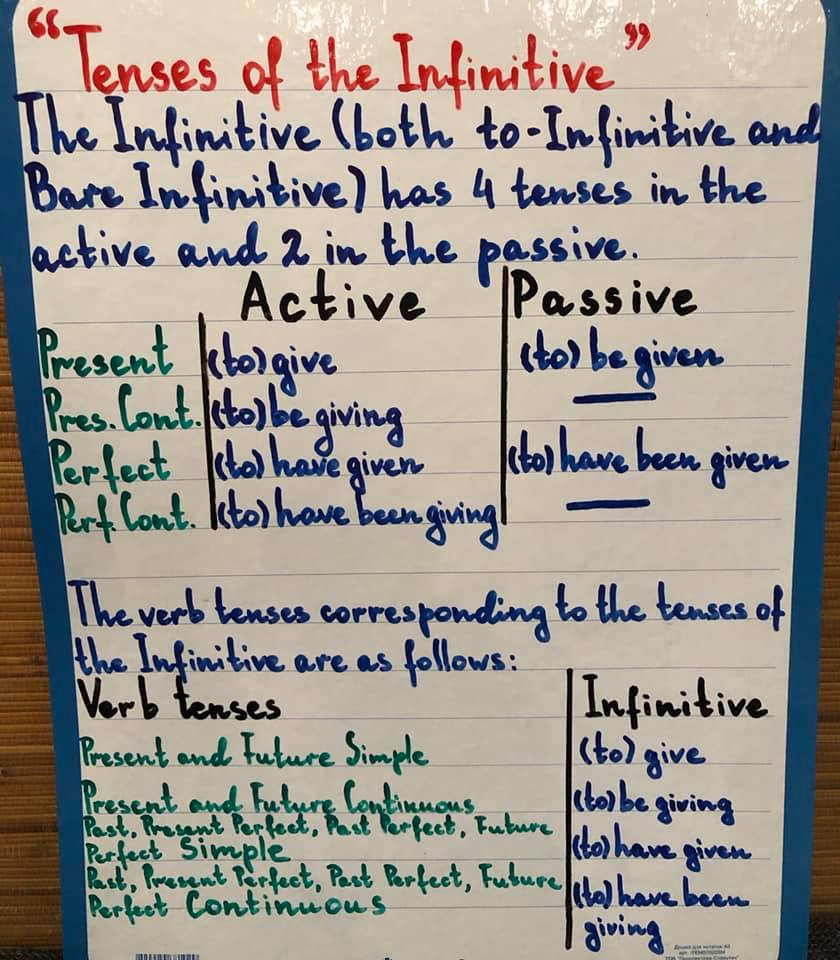 “Tenses of the Infinitive”
The Infinitive (both to-Infinitive and
Bare Infinitive) has 4 tenses in the
active and 2 in the passive.
Active Passive
Present (to) give (to) be given
Pres. Cont. (to) be giving —
Perfect (to) have given (to) have been given
Perf. Cont. (to) have been giving —
The verb tenses corresponding to the tenses of
the Infinitive are as follows:
Verb tenses Infinitive
Present and Future Simple (to) give
Present and Future Continuous (to) be giving
Past, Present Perfect, Past Perfect, Future
Perfect Simple (to) have given
Past, Present Perfect, Past Perfect, Future
Perfect Continuous (to) have been
giving
Дошка для нотаток А3